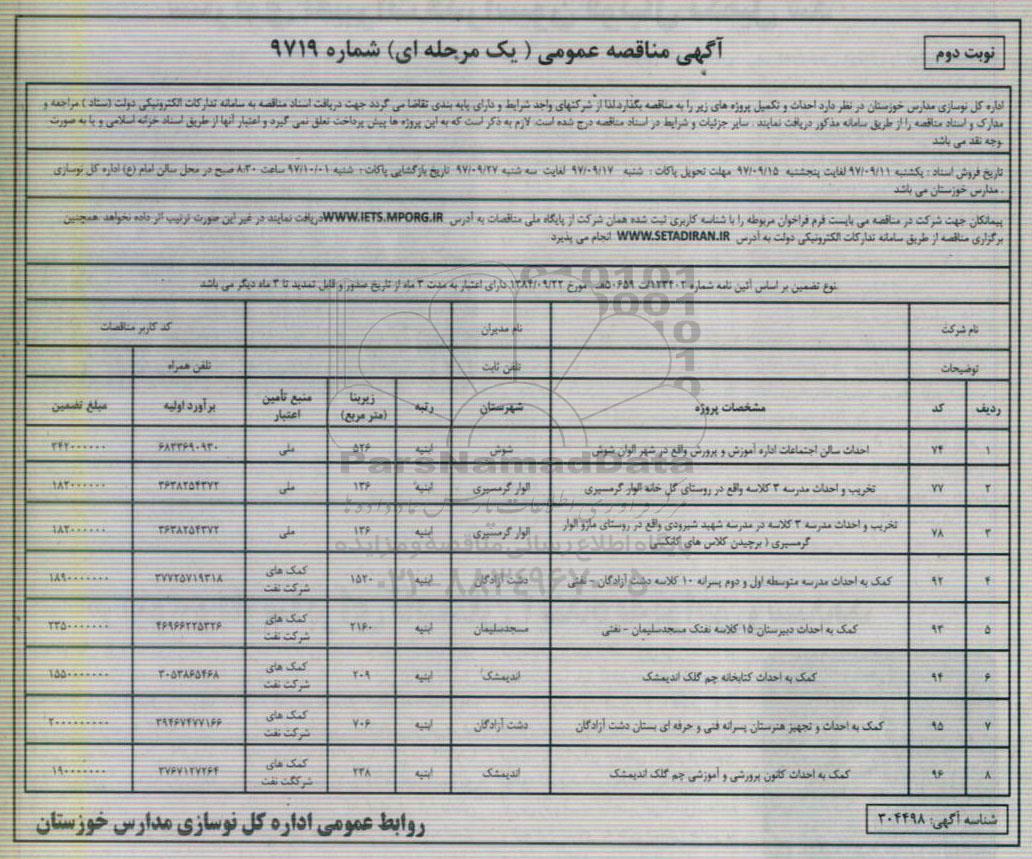 نوبت دوم
آگهی مناقصه عمومی ( یک مرحله ای) شماره ۹۷۱۹
اداره کل نوسازی مدارس خوزستان در نظر دارد احداث و تکمیل پروژه های زیر را به مناقصه بگذارد.لذا از شرکتهای واجد شرایط و دارای پایه بندی تقاضا می گردد جهت دریافت اسناد مناقصه به سامانه تدارکات الکترونیکی دولت (ستاد ) مراجعه و
مدارک و اسناد مناقصه را از طریق سامانه مذکور دریافت نمایند . سایر جزئیات و شرایط در اسناد مناقصه درج شده است. لازم به ذکر است که به این پروژه ها پیش پرداخت تعلق نمی گیرد و اعتبار آنها از طریق اسناد خزانه اسلامی و یا به صورت
وجه نقد می باشد
تاریخ فروش اسناد : یکشنبه ۹۷/۰۹/۱۱ لغایت پنجشنبه ۹۷/۰۹/۱۵ مهلت تحویل پاکات : شنبه ۹۷/۰۹/۱۷ لغایت سه شنبه ۹۷/۰۹/۲۷ تاریخ بازگشایی پاکات : شنبه ۹۷/۱۰/۰۱ ساعت ۸:۳۰ صبح در محل سالن امام (ع) اداره کل نوسازی
مدارس خوزستان می باشد .
پیمانکان جهت شرکت در مناقصه می بایست فرم فراخوان مربوطه را با شناسه کاربری ثبت شده همان شرکت از پایگاه ملی مناقصات به آدرس WWW.IETS.MPORG.IR دریافت نمایند در غیر این صورت ترتیب اثر داده نخواهد .همچنین
برگزاری مناقصه از طریق سامانه تدارکات الکترونیکی دولت به آدرس WWW.SETADIRAN.IR انجام می پذیرد
نوع تضمین بر اساس آئین نامه شماره ۱۲۳۴۰۲/ت ۵۰۶۵۹هـ مورخ ۱۳۸۴/۰۹/۲۲ دارای اعتبار به مدت ۳ ماه از تاریخ صدور و قابل تمدید تا ۳ ماه دیگر می باشد
نام شرکت نام مدیران کد کاربر مناقصات
توضیحات تلفن ثابت تلفن همراه
ردیف کد مشخصات پروژه شهرستان رتبه زیربنا (متر مربع) منبع تأمین اعتبار برآورد اولیه مبلغ تضمین
۱ ۷۴ احداث سالن اجتماعات اداره آموزش و پرورش واقع در شهر الوان شوش شوش ابنیه ۵۲۶ ملی ۶۸۳۳۶۹۰۹۳۰ ۳۴۲۰۰۰۰۰۰
۲ ۷۷ تخریب و احداث مدرسه ۳ کلاسه واقع در روستای گل خانه الوار گرمسیری الوار گرمسیری ابنیه ۱۳۶ ملی ۳۶۳۸۲۵۴۳۷۲ ۱۸۲۰۰۰۰۰۰
۳ ۷۸ تخریب و احداث مدرسه ۳ کلاسه در مدرسه شهید شیرودی واقع در روستای مازو الوار
گرمسیری ( برچیدن کلاس های کانکسی الوار گرمسیری ابنیه ۱۳۶ ملی ۳۶۳۸۲۵۴۳۷۲ ۱۸۲۰۰۰۰۰۰
۴ ۹۲ کمک به احداث مدرسه متوسطه اول و دوم پسرانه ۱۰ کلاسه دشت آزادگان - نفتی دشت آزادگان ابنیه ۱۵۲۰ کمک های شرکت نفت ۳۷۷۲۵۷۱۹۳۱۸ ۱۸۹۰۰۰۰۰۰۰
۵ ۹۳ کمک به احداث دبیرستان ۱۵ کلاسه نفتک مسجدسلیمان - نفتی مسجدسلیمان ابنیه ۲۱۶۰ کمک های شرکت نفت ۴۶۹۶۶۲۲۵۳۲۶ ۲۳۵۰۰۰۰۰۰۰
۶ ۹۴ کمک به احداث کتابخانه چم گلک اندیمشک اندیمشک ابنیه ۲۰۹ کمک های شرکت نفت ۳۰۵۳۸۶۵۴۶۸ ۱۵۵۰۰۰۰۰۰
۷ ۹۵ کمک به احداث و تجهیز هنرستان پسرانه فنی و حرفه ای بستان دشت آزادگان دشت آزادگان ابنیه ۷۰۶ کمک های شرکت نفت ۳۹۴۶۷۴۷۷۱۶۶ ۲۰۰۰۰۰۰۰۰۰
۸ ۹۶ کمک به احداث کانون پرورشی و آموزشی چم گلک اندیمشک اندیمشک ابنیه ۲۳۸ کمک های شرکگت نفت ۳۷۶۷۱۲۷۲۶۴ ۱۹۰۰۰۰۰۰۰
شناسه آگهی: ۳۰۴۴۹۸
روابط عمومی اداره کل نوسازی مدارس خوزستان
ParsNamadData
پایگاه اطلاع رسانی مناقصه و مزایده
۰۲۱-۸۸۳۴۹۶۷۰-۵